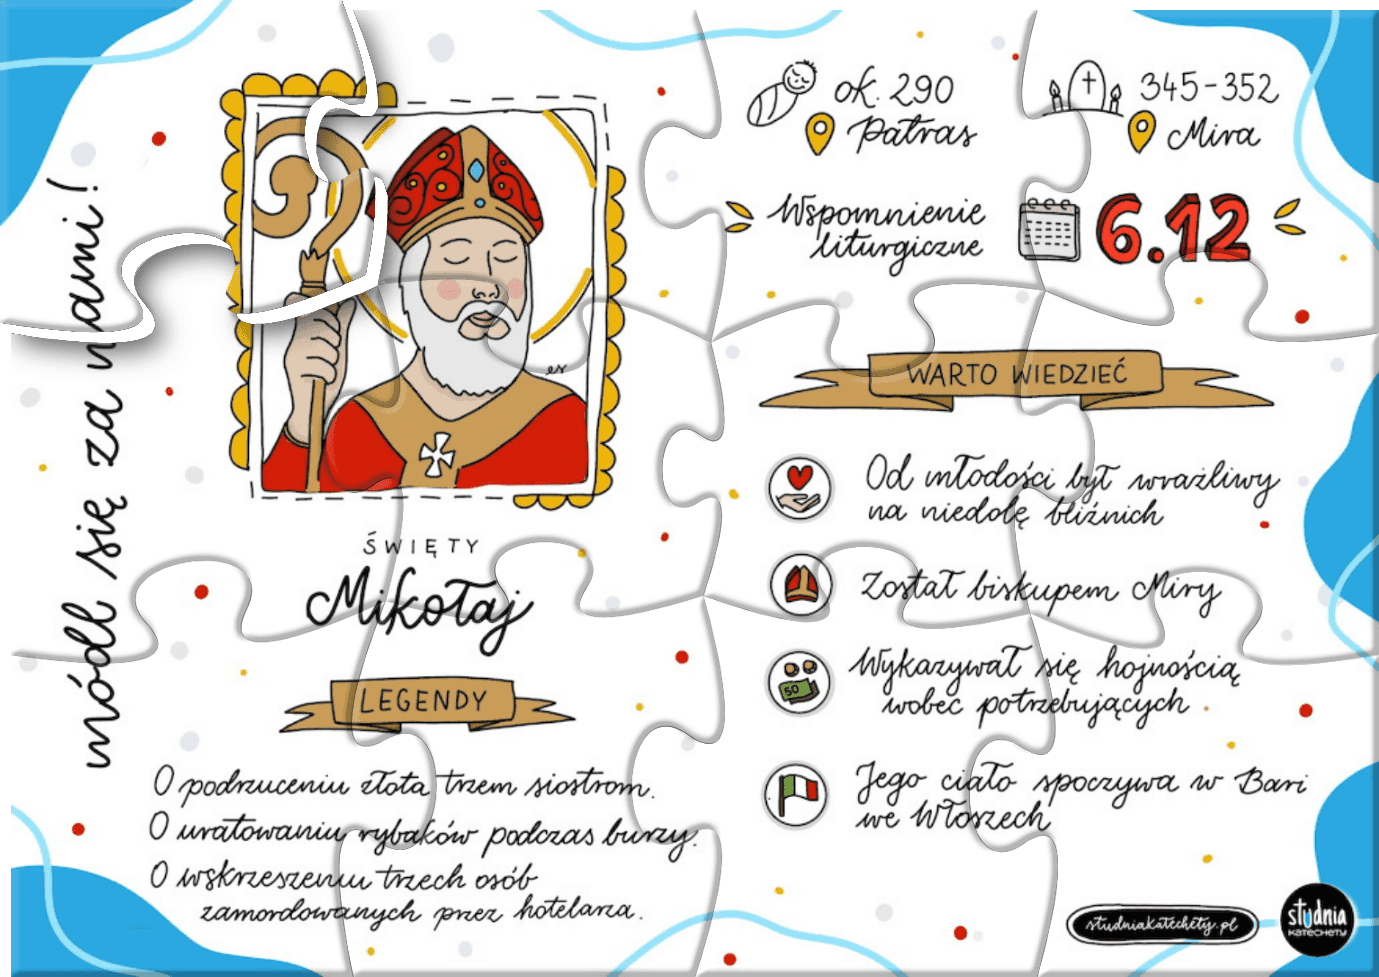 módl się za nami!
ok. 290
Patras
345-352
Mira
Wspomnienie
liturgiczne
6.12
es
ŚWIĘTY
Mikołaj
LEGENDY
O podrzuceniu złota trzem siostrom.
O uratowaniu rybaków podczas burzy.
O wskrzeszeniu trzech osób
zamordowanych przez hotelarza.
WARTO WIEDZIEĆ
Od młodości był wrażliwy
na niedolę bliźnich
Został biskupem Miry
50
Wykazywał się hojnością
wobec potrzebujących
Jego ciało spoczywa w Bari
we Włoszech
studniakatechety.pl
studnia
KATECHETY